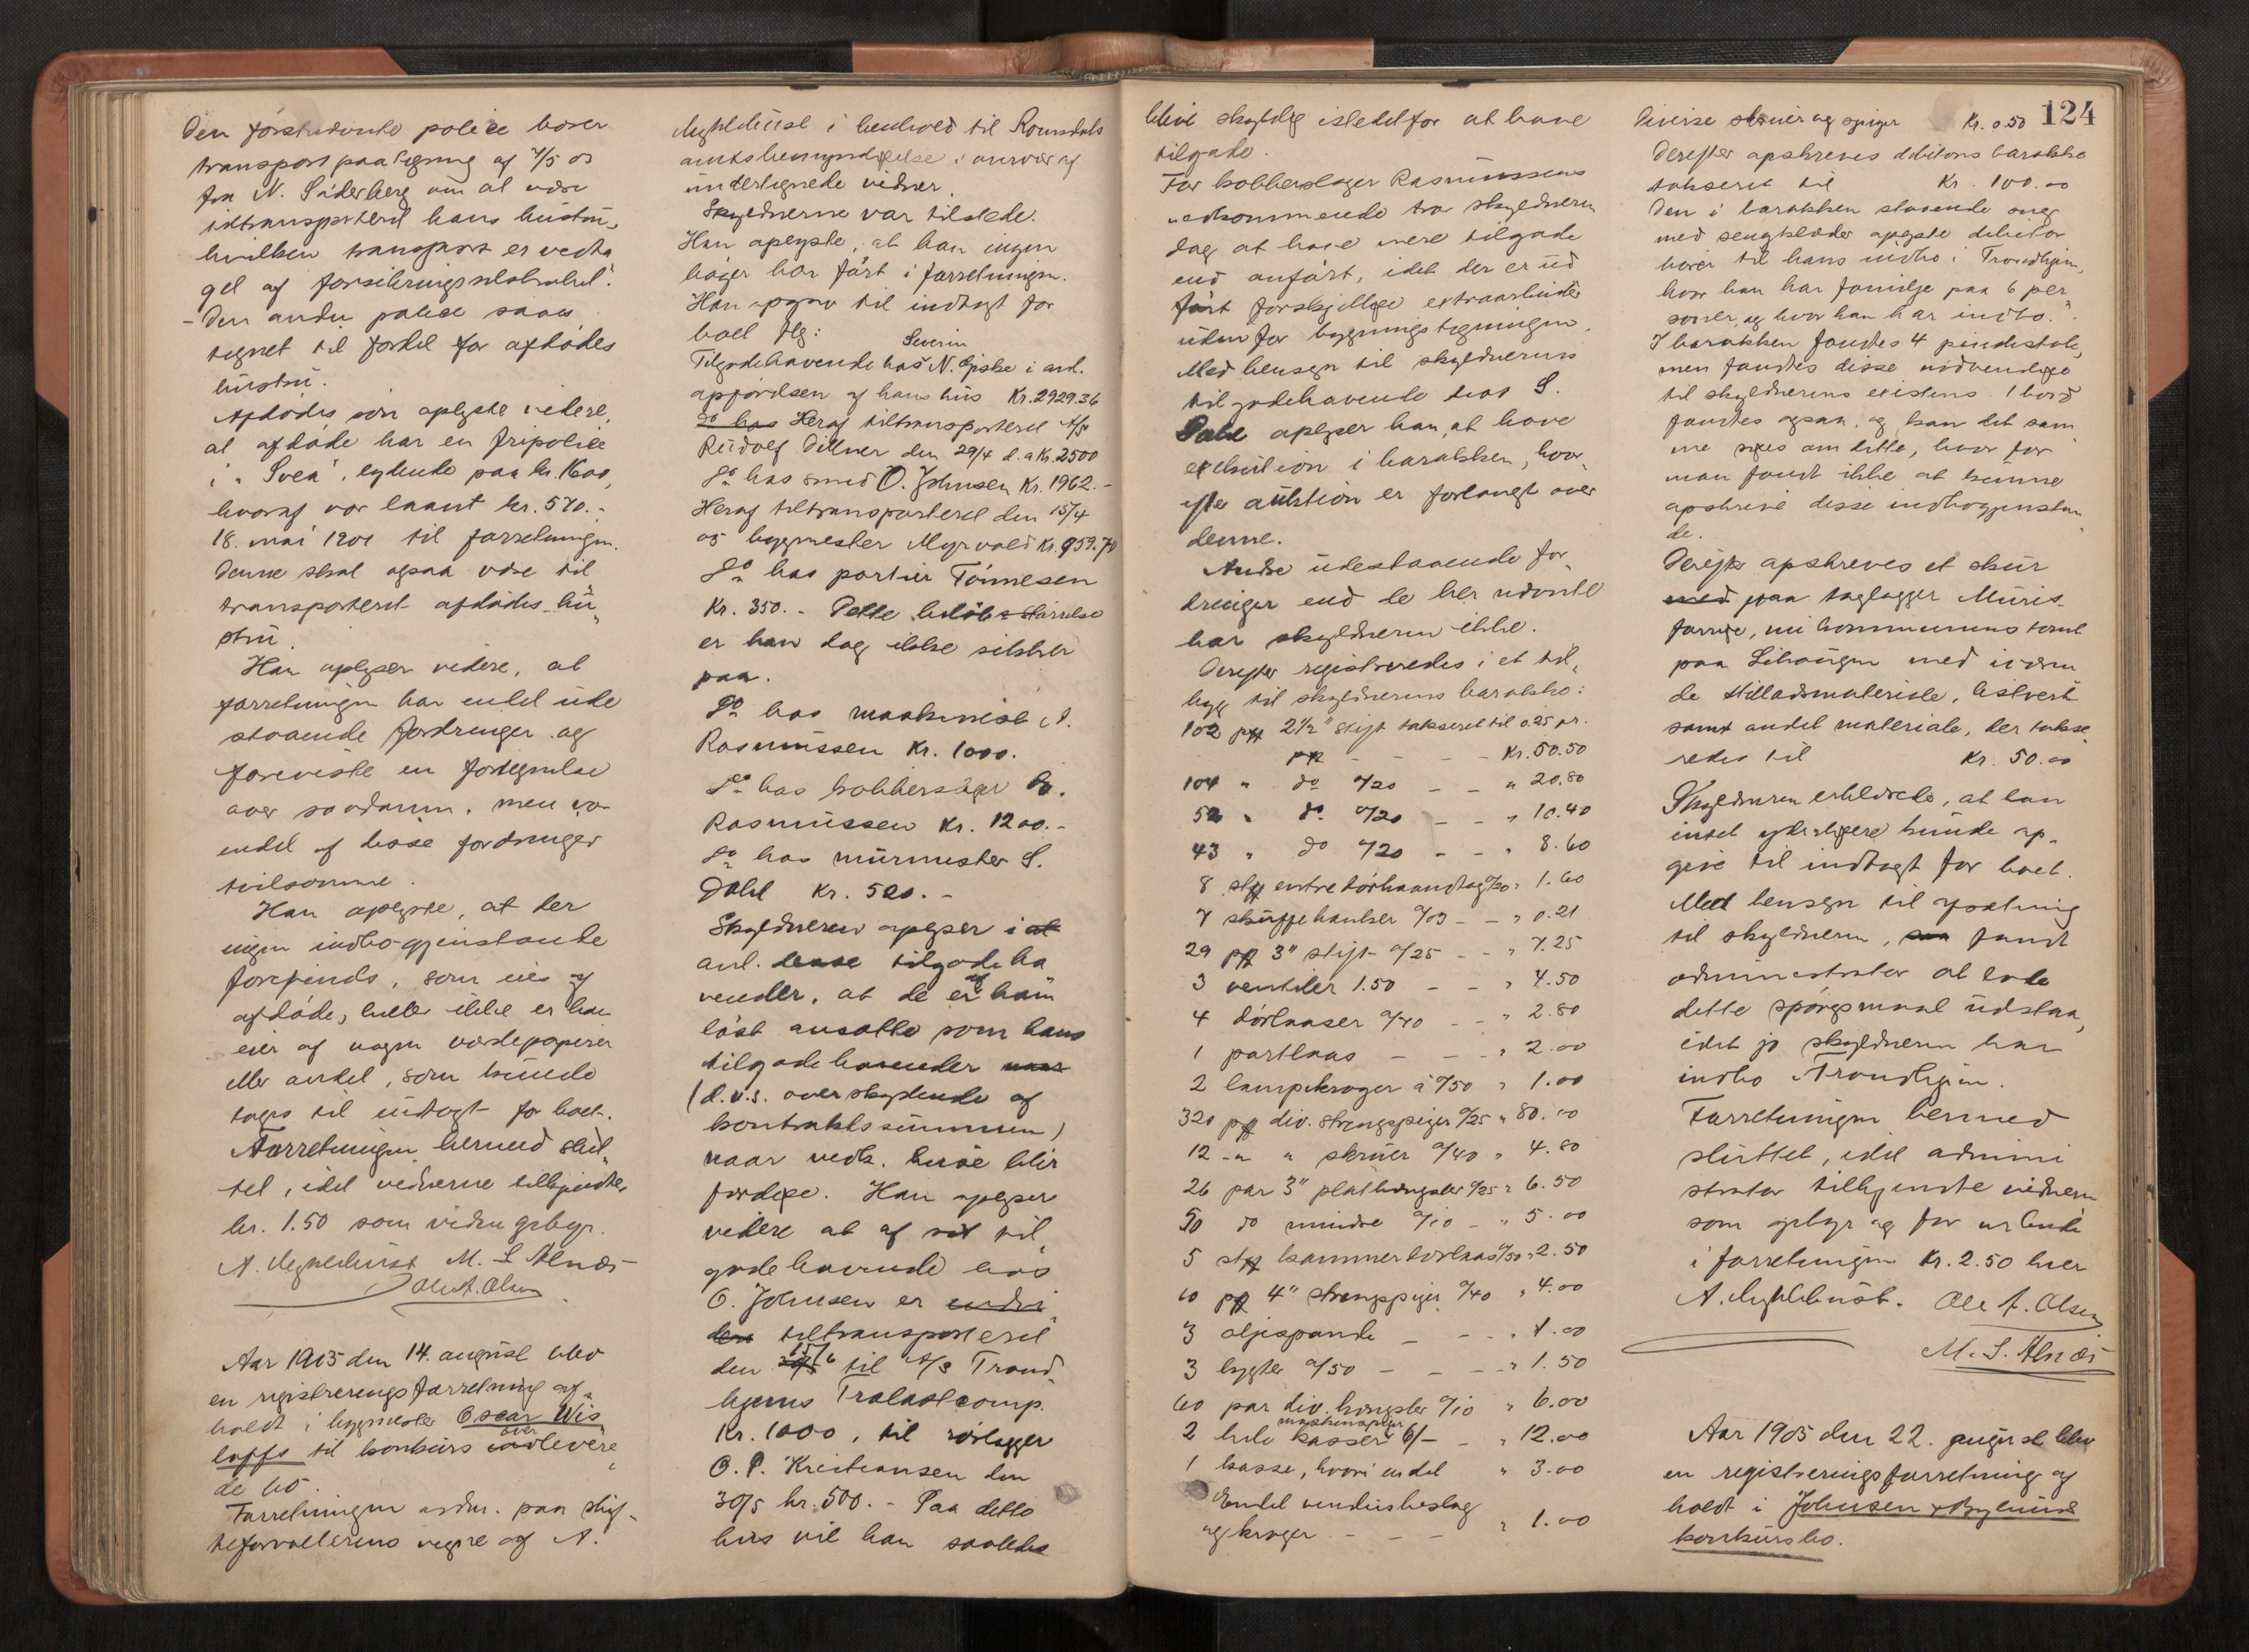 Den førstnævnte police bærer
transportpaategning af 4/5 05
fra N. Söderberg om at være
idtransporteret hans hustru,
hvilken transport er vedta
get af forsikringsselskabet.
- Den anden police saaes
tegnet til fordel for afdødes
hustru.
Afdødes søn oplyste videre,
at afdøde har en fripolice
i "Svea", lydende paa kr. 1600,
hvoraf var laant kr. 570.-
18. mai 1901 til forretningen.
Denne skal ogsaa være til
transporteret afdødes hu
stru.
Han oplyser videre, at
forretningen har endel ude
staaende fordringer og
foreviste en fortegnelse
over saadanne, men var
endel af disse fordringer
tvilsomme.
Han oplyste, at der
ingen indbogjenstande
forefinds, som eies af
afdøde, heller ikke er han
eier af nogen værdipapirer
eller andet, som kunde
tages til indtægt for boet.
Forretningen hermed slut
tet, idet vidnerne tilkjendtes
kr. 1.50 som vidnegebyr.
A. Myklebust M. S. Alnæs
Ole A. Olsen
Aar 1905 den 14. august blev
en registreringsforretning af
holdt i bygmester Oscar Wis
løffs til konkurs over indlevere
de bo.
Forretningen adm. paa skif
teforvalterens vegne af A.
Myklebust i henhold til Romsdals
amts bemyndigelse i overvær af
undertegnede vidner.
Skyldneren var tilstede.
Han oplyste, at han ingen
bøger har ført i forretningen.
Han opgav til indtægt for
boet flg:
Severin
Tilgodehavende hos N. Giske i anl.
opførelsen af hans hus Kr. 2929.36
do hos Heraf tiltransporteret A/S
Rudolf Dillner den 29/4 d.a Kr. 2500
do hos smed O. Johnsen Kr. 1962.-
Heraf tiltransporteret den 15/4
05 bygmester Myrvold Kr. 959.70
do hos portier Tønnesen
Kr. 350.- Dette beløbs størrelse
er han dog ikke sikker
paa.
do hos maskinist A.
Rasmussen Kr. 1000.
do hos kobberslager B.
Rasmussen Kr. 1200.-
do hos murmester S.
Dahl Kr. 520.-
Skyldneren oplyser i at
anl. disse tilgodeha
vender, at de er af ham
løst ansatte som hans
tilgodehavender naar
(d.v.s. overskydende af
kontraktssummen)
naar vedk. huse blir
færdige. Han oplyser
videre at af sit til
godehavende hos
O. Johnsen er endvi
dere tiltransporteret
den 15/6 til A/S Trond
hjems Trælastcomp.
Kr. 1000, til rørlægger
O. P. Kristiansen den
30/5 kr. 500.- Paa dette
hus vil han saaledes
blive skyldig istedetfor at have
tilgode.
For kobberslager Rasmussens
vedkommende tror skyldneren
dog at have mere tilgode
end anført, idet der er ud
ført forskjellige extraarbeider
udenfor bygningstegningen.
Med hensyn til skyldnerens
tilgodehavende hos S.
Dahl oplyser han, at have
exekution i barakken, hvor
efter auktion er forlangt over
denne.
Andre udestaaende for
dringer end de her nævnte
har skyldneren ikke.
Derefter registreredes i et til
bygg til skyldnerens barakke:
102 pk 2½" stift takseret til 0.25 pr.
pk - - - Kr. 50.50
104 " do 0/20 - - " 20.80
52 " do 0/20 - - " 10.40
43 " do 0/20 - - " 8.60
8 stk entredørhaandtag 0/20 " 1.60
7 skuffehanker 0/03 - - " 0.21
29 pk 3" stift 0/25 - - " 7.25
3 ventiler 1.50 - - " 4.50
4 dørlaaser 0/70 - - " 2.80
1 portlaas - - - " 2.00
2 lampekroger á 0/50 " 1.00
320 pk div. strengspiger 0/25 " 80.00
12 - " " skruer 0/40 " 4.80
26 par 3" plathængsler 0/25 " 6.50
50 do mindre 0/10 - " 5.00
5 stk kammerdørlaas 0/50 " 2.50
10 pk 4" strengspiger 0/40 " 4.00
3 oljespande - - - " 1.00
3 lygter 0/50 - - - " 1.50
60 par div. hængsler 0/10 " 6.00
maskinspiger
2 hele kasser 6/- - " 12.00
1 kasse, hvori endel " 3.00
Endel vinduesbeslag
og kroger - - - " 1.00
124
Diverse skruer og spiger Kr. 0.50
Derefter opskreves debitors barakke
takseret til Kr. 100.00
Den i barakken staaende seng
med sengklæder oplyste debitor
hører til hans indbo i Trondhjem,
hvor han har familje paa 6 per
soner, og hvor han har indbo.
I barakken fandtes 4 pindestole,
men fandtes disse nødvendige
til skyldnerens existens. 1 bord
fandtes ogsaa, og kan det sam
me siges om dette, hvor for
man fandt ikke at kunne
opskrive disse indbogjenstan
de.
Derefter opskreves et skur
med paa taglægger Muris
Farrige, nu kommunens tomt
paa Lihaugen med iværen
de stilladsmateriale, listverk
samt andet materiale, der takse
redes til Kr. 50.00
Skyldneren erklærede, at han
intet yderligere kunde op
give til indtægt for boet.
Med hensyn til opsætning
til skyldneren, saa fandt
administrator at lade
dette spørgsmaal udstaa,
idet jo skyldneren har
indbo i Trondhjem.
Forretningen hermed
sluttet, idet admini
strator tilkjendte vidnerne
som gebyr og for arbeide
i forretningen Kr. 2.50 hver
A. Myklebust. Ole A. Olsen
M. S. Alnæs
Aar 1905 den 22. august blev
en registreringsforretning af
holdt i Johnsen & Myklebust
konkursbo.